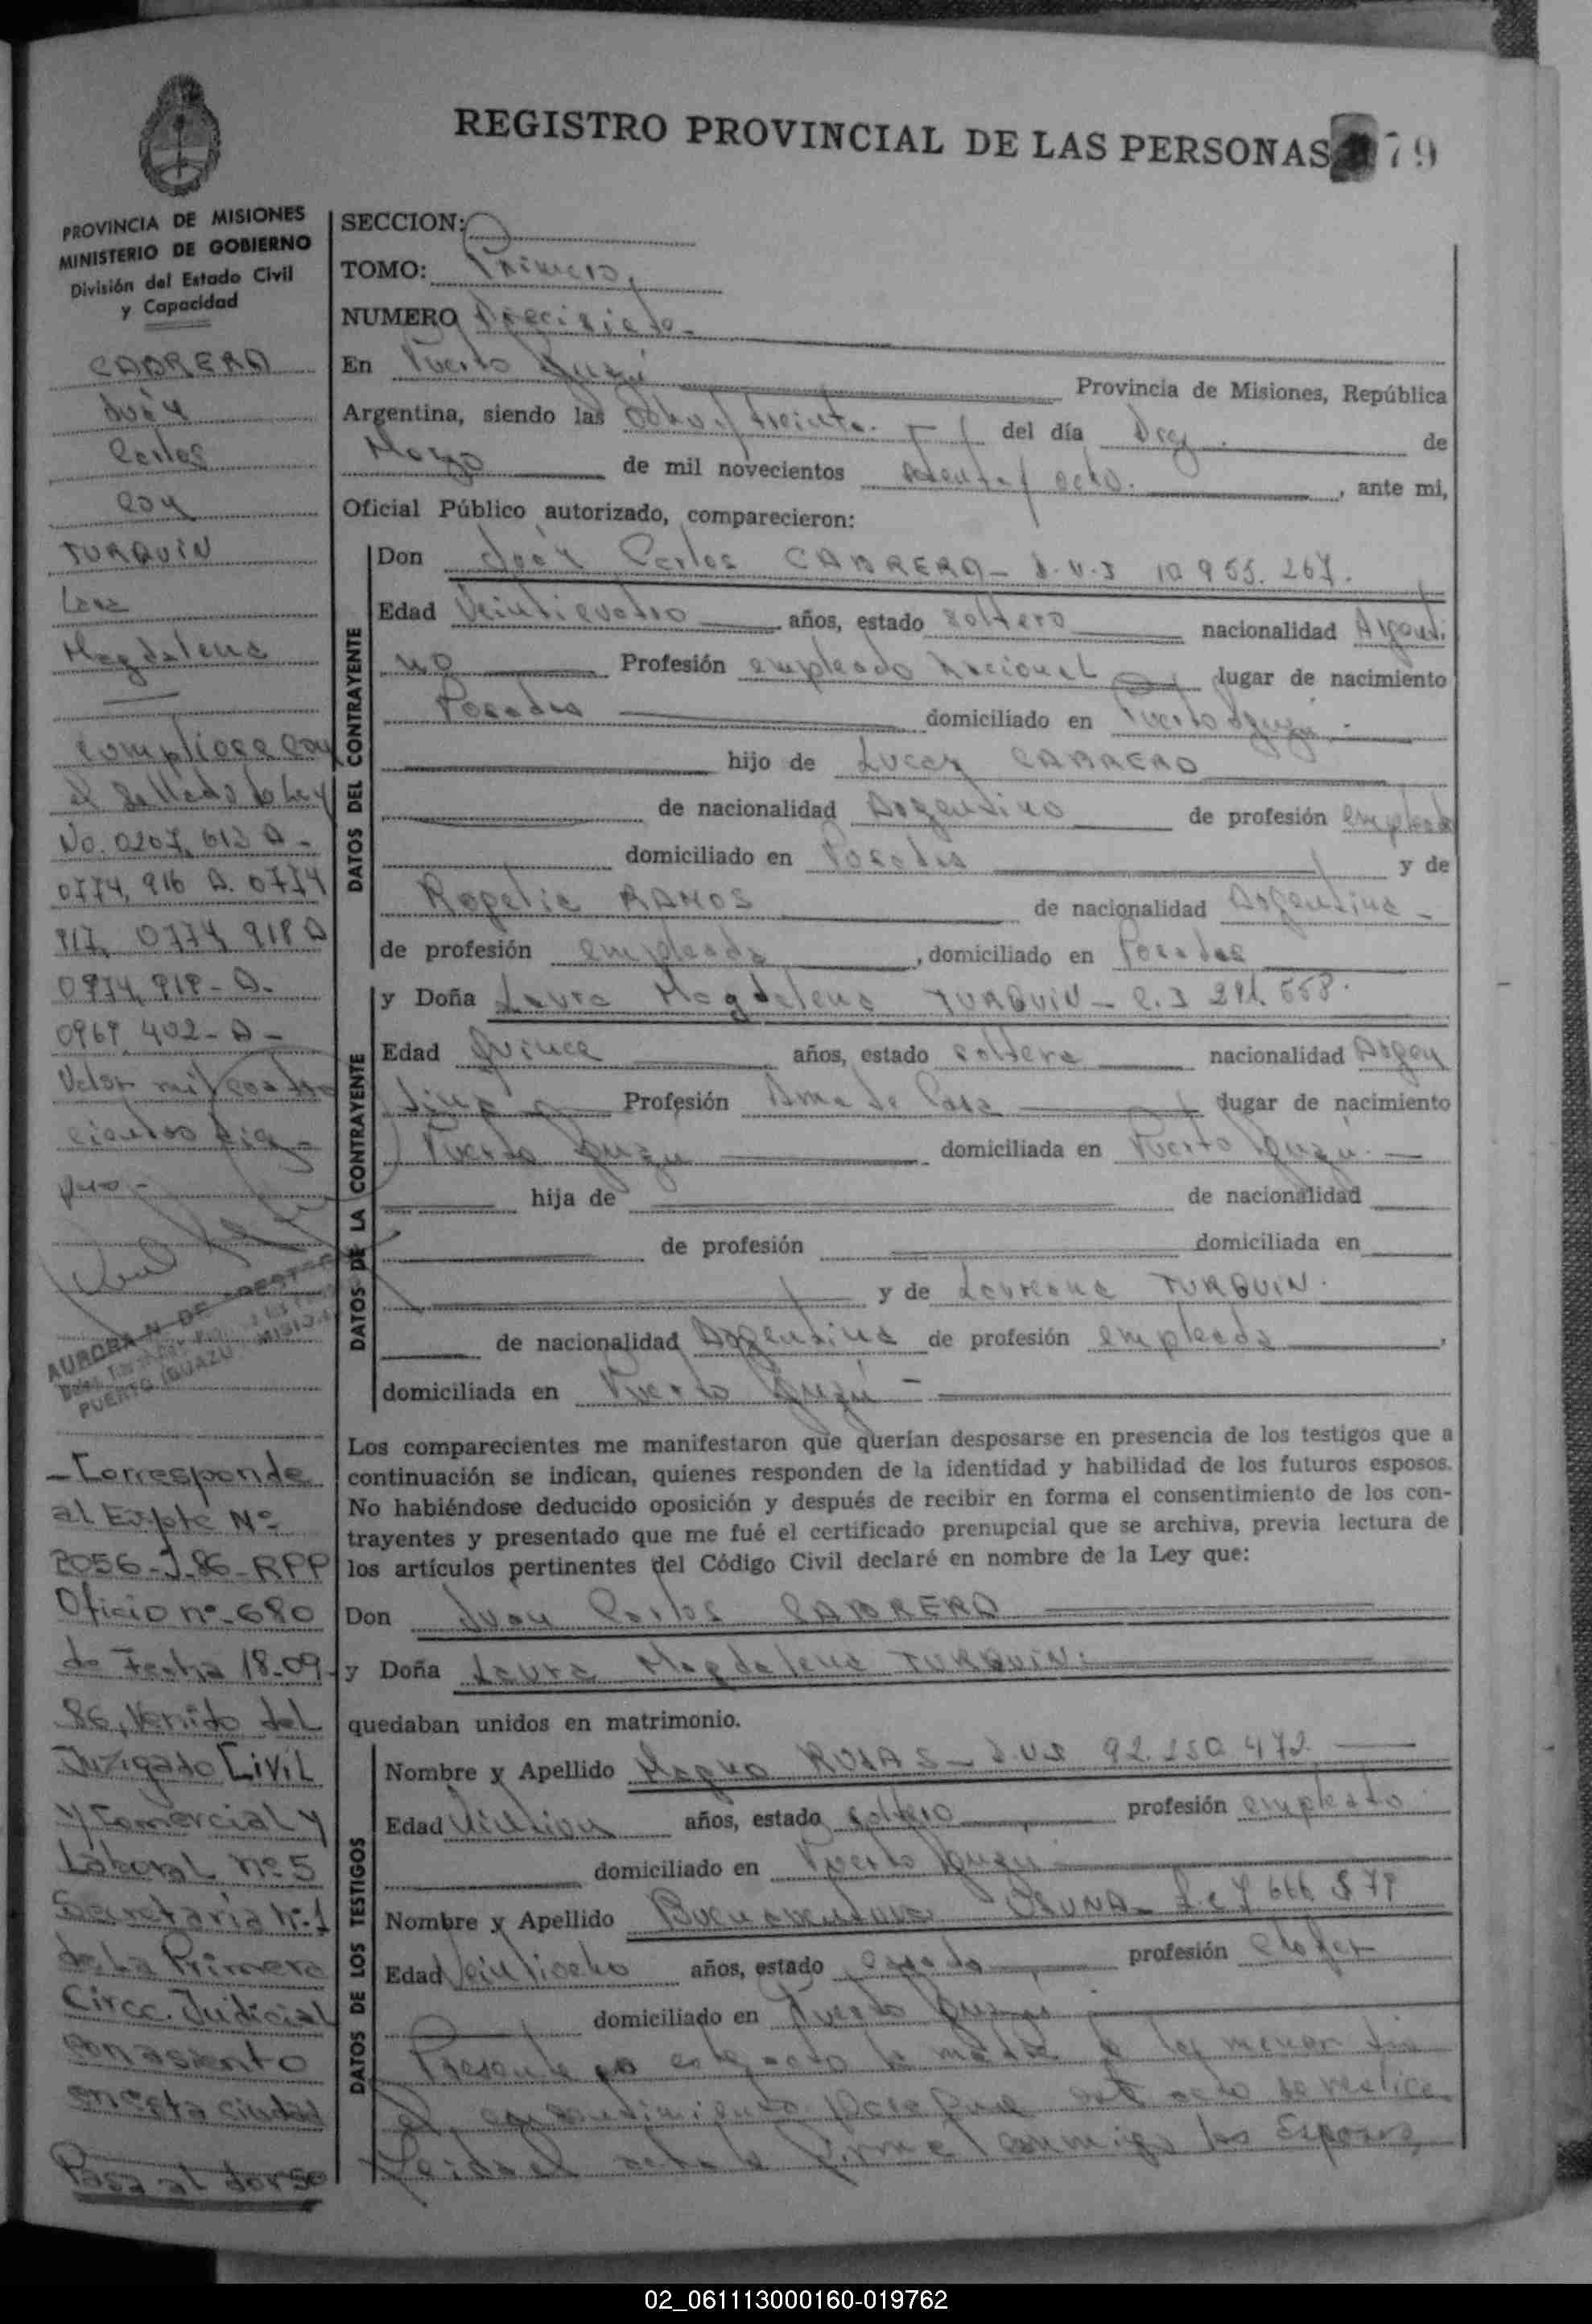 REGISTRO PROVINCIAL DE LAS PERSONAS 79
PROVINCIA DE MISIONES
MINISTERIO DE GOBIERNO
División del Estado Civil
y Capacidad
CABRERA
Juan
Carlos
con
TURQUIN
Laura
Magdalena
No. 0207, 613 A -
0774, 916 A. 0774
917, 0774, 918 A
0974, 919 - A.
0969, 402 - A -
Valor mil cuatro
cientos
AURORA N. DE
PUERTO IGUAZU - MISIONES
- Corresponde
al Expte Nº
2056-J-86-RPP
Oficio nº-680
de Fecha 18-09-
86, Venido del
Juzgado Civil
y Comercial y
Laboral nº 5
Secretaria Nº-1
de La Primera
Circc. Judicial
con asiento
en esta ciudad
Pasa al dorso
SECCION:
TOMO: Primero,
NUMERO Diecisiete -
En Puerto Iguazú Provincia de Misiones, República
Argentina, siendo las ocho y treinta. del día Diez de
Marzo de mil novecientos setenta y ocho. , ante mi,
Oficial Público autorizado, comparecieron:
DATOS DEL CONTRAYENTE
Don Juan Carlos CABRERA - D.N.I 10 955. 267.
Edad Veinticuatro años, estado soltero nacionalidad Argenti
no Profesión empleado Nacional lugar de nacimiento
Posadas domiciliado en Puerto Iguazú -
hijo de Lucas CABRERA
de nacionalidad Argentino de profesión empleado
domiciliado en Posadas y de
Rogelia RAMOS de nacionalidad Argentina -
de profesión empleada , domiciliado en Posadas
DATOS DE LA CONTRAYENTE
y Doña Laura Magdalena TURQUIN - C.I 291. 558.
Edad Quince años, estado soltera nacionalidad Argen
tina Profesión Ama de Casa lugar de nacimiento
Puerto Iguazú domiciliada en Puerto Iguazú. -
hija de de nacionalidad
de profesión domiciliada en
y de Laureana TURQUIN.
de nacionalidad Argentina de profesión empleada ,
domiciliada en Puerto Iguazú -
Los comparecientes me manifestaron que querían desposarse en presencia de los testigos que a
continuación se indican, quienes responden de la identidad y habilidad de los futuros esposos.
No habiéndose deducido oposición y después de recibir en forma el consentimiento de los con-
trayentes y presentado que me fué el certificado prenupcial que se archiva, previa lectura de
los artículos pertinentes del Código Civil declaré en nombre de la Ley que:
Don Juan Carlos CABRERA
y Doña Laura Magdalena TURQUIN.
quedaban unidos en matrimonio.
DATOS DE LOS TESTIGOS
Nombre y Apellido ROJAS - D.N.I 92. 250 472.
Edad años, estado soltero profesión empleado
domiciliado en Puerto Iguazú
Nombre y Apellido Buenaventura OSUNA -
Edad Veintiocho años, estado casado profesión chofer
domiciliado en Puerto Iguazú
Presente en este acto la madre de la menor
el consentimiento para que este acto se realice.
Leida el acta la firman conmigo los Esposos,
02_061113000160-019762